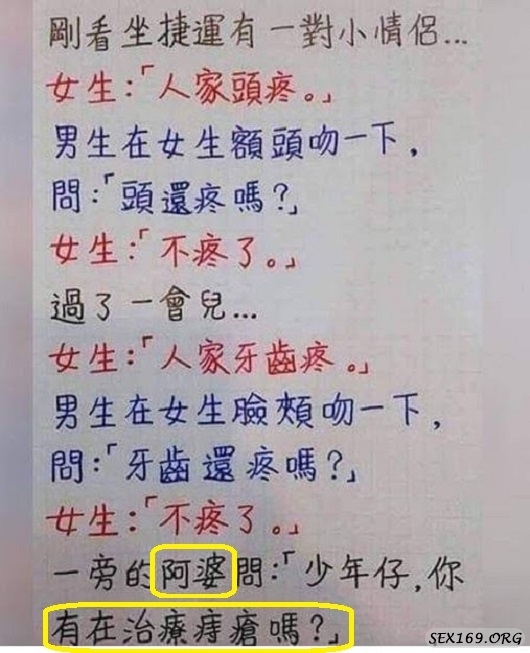 剛看坐捷運有一對小情侶...
女生:「人家頭疼。」
男生在女生額頭吻一下,
問:「頭還疼嗎?」
女生:「不疼了。」
過了一會兒...
女生:「人家牙齒疼。」
男生在女生臉頰吻一下,
問:「牙齒還疼嗎?」
女生:「不疼了。」
一旁的阿婆問:「少年仔,你
有在治療痔瘡嗎?」
SEX169.ORG